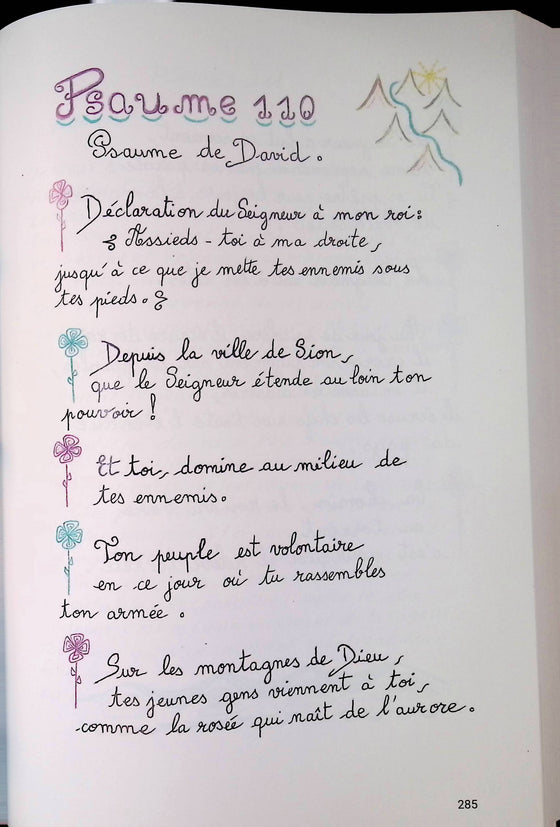 Psaume 110
Psaume de David.
Déclaration du Seigneur à mon roi:
« Assieds-toi à ma droite,
jusqu'à ce que je mette tes ennemis sous
tes pieds. »
Depuis la ville de Sion,
que le Seigneur étende au loin ton
pouvoir !
Et toi, domine au milieu de
tes ennemis.
Ton peuple est volontaire
en ce jour où tu rassembles
ton armée.
Sur les montagnes de Dieu,
tes jeunes gens viennent à toi,
comme la rosée qui naît de l'aurore.
285